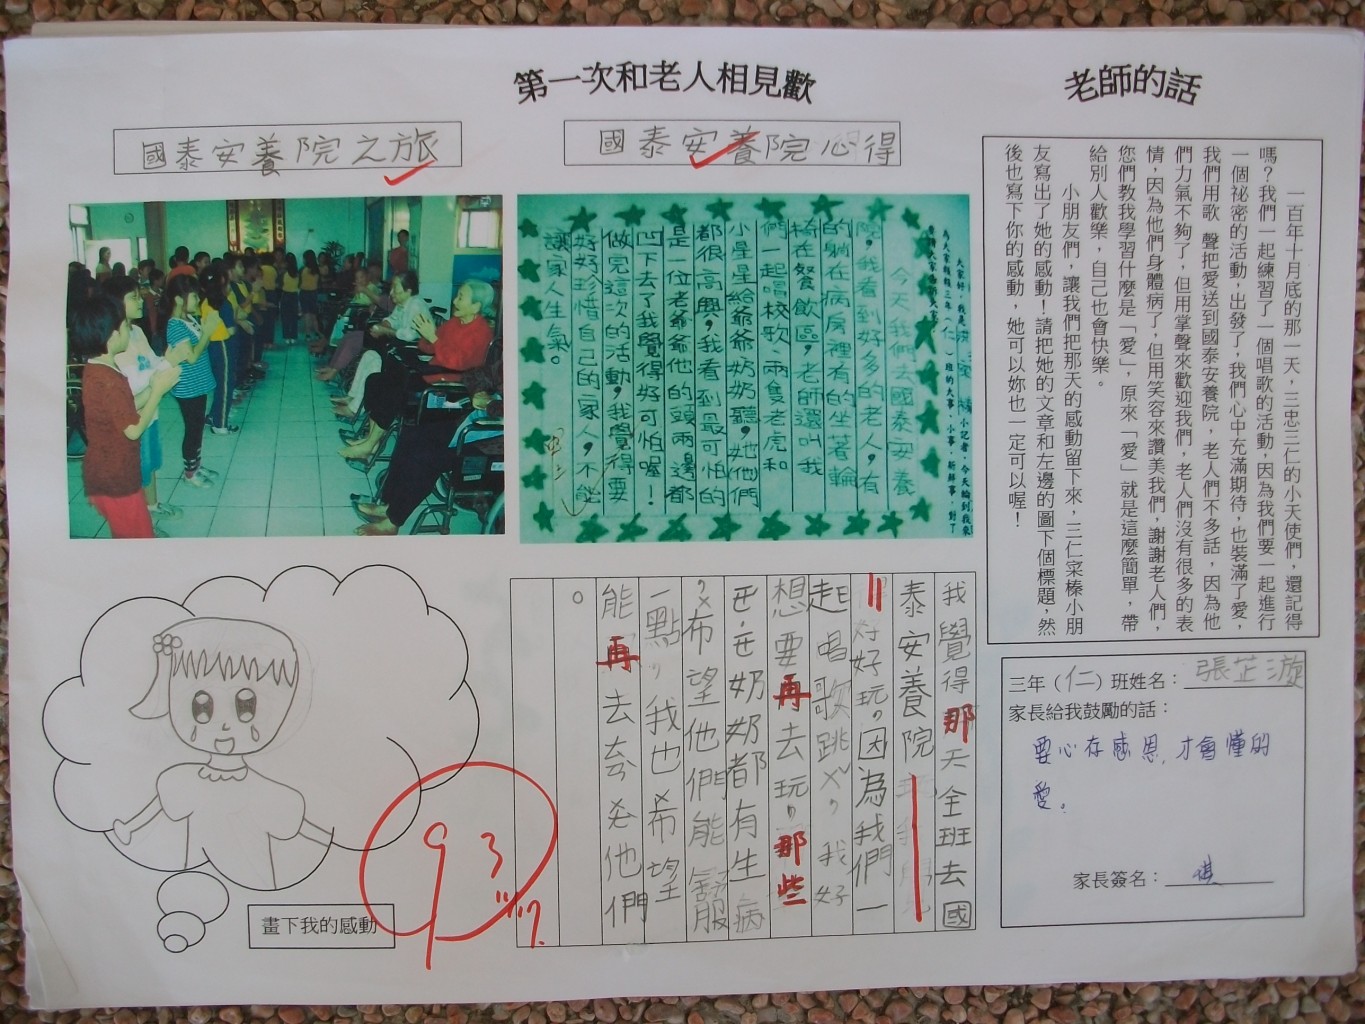 第一次和老人相見歡
老師的話
國泰安養院之旅
國泰安養院心得
一百年十月底的那一天，三忠三仁的小天使們，還記得
嗎？我們一起練習了一個唱歌的活動，因為我們要一起進行
一個祕密的活動，出發了，我們心中充滿期待，也裝滿了愛，
我們用歌 聲把愛送到國泰安養院，老人們不多話，因為他
們力氣不夠了，但用掌聲來歡迎我們，老人們沒有很多的表
情，因為他們身體病了，但用笑容來讚美我們，謝謝老人們，
您們教我學習什麼是「愛」，原來「愛」就是這麼簡單，帶
給別人歡樂，自己也會快樂。
小朋友們，讓我們把那天的感動留下來，三仁寀榛小朋
友寫出了她的感動！請把她的文章和左邊的圖下個標題，然
後也寫下你的感動，她可以妳也一定可以喔！
大家好，我是 小記者，今天輪到我來
為大家報報三年（仁）班的大事、小事、新鮮事，
今天我們去國泰安養
院，我看到好多的老人，有
的躺在病房裡有的坐著輪
椅在餐飲區，老師還叫我
們一起唱校歌、兩隻老虎和
小星星給爺爺奶奶聽，她他們
都很高興，我看到最可怕的
是一位老爺爺他的頭兩邊都
凹下去了我覺得好可怕喔！
做完這次的活動，我覺得要
好好珍惜自己的家人，不能
讓家人生氣。
我覺得那天全班去國
泰安養院
好好玩，因為我們一
起唱歌跳ㄨˇ，我好
想要再去玩，那些
ㄝˊㄝ奶奶都有生病
，希望他們能舒服
一點，我也希望
能再去看他們
。
畫下我的感動
93
11/17.
三年（仁）班姓名：張芷漩
家長給我鼓勵的話：
要心存感恩，才會懂的
愛。
家長簽名：